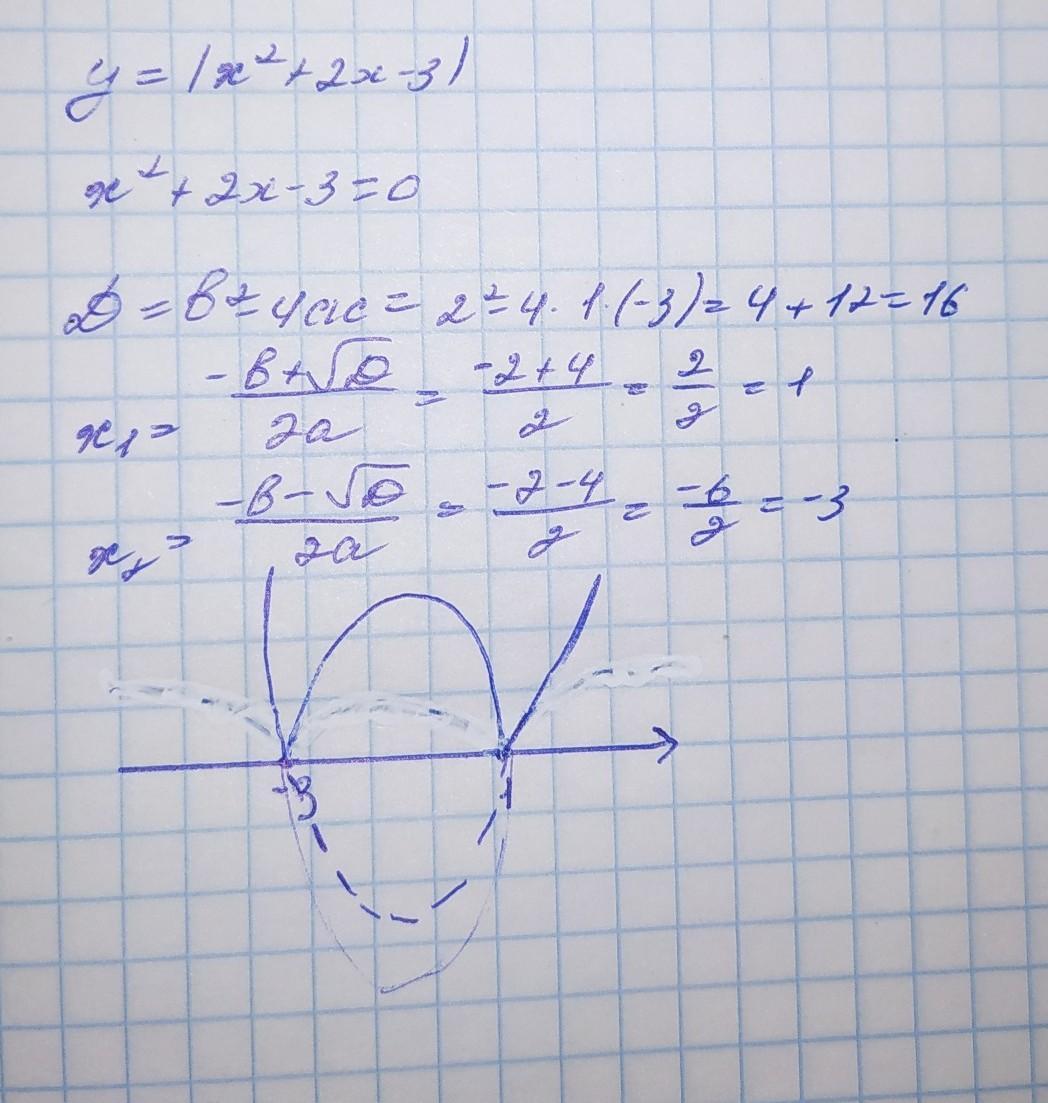 y = |x² + 2x - 3|
x² + 2x - 3 = 0
D = b² - 4ac = 2² - 4 · 1 · (-3) = 4 + 12 = 16
x₁ = (-b + √D)/2a = (-2 + 4)/2 = 2/2 = 1
x₂ = (-b - √D)/2a = (-2 - 4)/2 = -6/2 = -3
-3 1